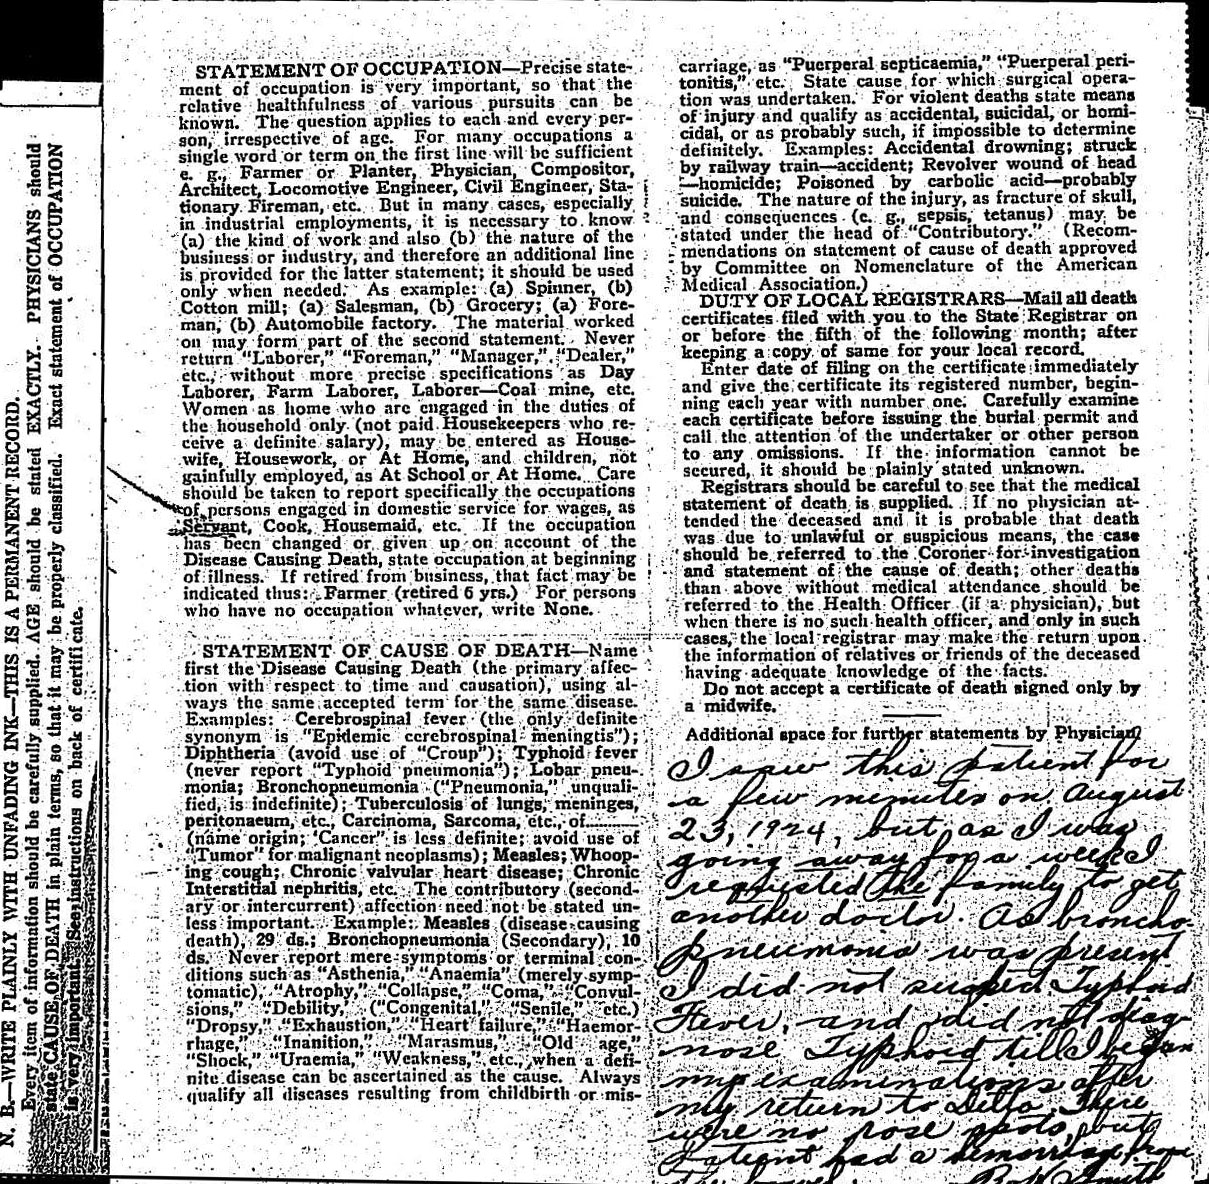 N. B.—WRITE PLAINLY WITH UNFADING INK—THIS IS A PERMANENT RECORD.
Every item of information should be carefully supplied. AGE should be stated EXACTLY. PHYSICIANS should
state CAUSE OF DEATH in plain terms, so that it may be properly classified. Exact statement of OCCUPATION
is very important. See instructions on back of certificate.
STATEMENT OF OCCUPATION—Precise state-
ment of occupation is very important, so that the
relative healthfulness of various pursuits can be
known. The question applies to each and every per-
son, irrespective of age. For many occupations a
single word or term on the first line will be sufficient
e. g., Farmer or Planter, Physician, Compositor,
Architect, Locomotive Engineer, Civil Engineer, Sta-
tionary Fireman, etc. But in many cases, especially
in industrial employments, it is necessary to know
(a) the kind of work and also (b) the nature of the
business or industry, and therefore an additional line
is provided for the latter statement; it should be used
only when needed. As example: (a) Spinner, (b)
Cotton mill; (a) Salesman, (b) Grocery; (a) Fore-
man, (b) Automobile factory. The material worked
on may form part of the second statement. Never
return "Laborer," "Foreman," "Manager," "Dealer,"
etc., without more precise specifications as Day
Laborer, Farm Laborer, Laborer—Coal mine, etc.
Women as home who are engaged in the duties of
the household only (not paid Housekeepers who re-
ceive a definite salary), may be entered as House-
wife, Housework, or At Home, and children, not
gainfully employed, as At School or At Home. Care
should be taken to report specifically the occupations
of persons engaged in domestic service for wages, as
Servant, Cook, Housemaid, etc. If the occupation
has been changed or given up on account of the
Disease Causing Death, state occupation at beginning
of illness. If retired from business, that fact may be
indicated thus: Farmer (retired 6 yrs.) For persons
who have no occupation whatever, write None.
STATEMENT OF CAUSE OF DEATH—Name
first the Disease Causing Death (the primary affec-
tion with respect to time and causation), using al-
ways the same accepted term for the same disease.
Examples: Cerebrospinal fever (the only definite
synonym is "Epidemic cerebrospinal meningtis");
Diphtheria (avoid use of "Croup"); Typhoid fever
(never report "Typhoid pneumonia"); Lobar pneu-
monia; Bronchopneumonia ("Pneumonia," unquali-
fied, is indefinite); Tuberculosis of lungs, meninges,
peritonaeum, etc., Carcinoma, Sarcoma, etc., of
(name origin; 'Cancer" is less definite; avoid use of
"Tumor" for malignant neoplasms); Measles; Whoop-
ing cough; Chronic valvular heart disease; Chronic
Interstitial nephritis, etc. The contributory (second-
ary or intercurrent) affection need not be stated un-
less important. Example: Measles (disease causing
death), 29 ds.; Bronchopneumonia (Secondary), 10
ds. Never report mere symptoms or terminal con-
ditions such as "Asthenia," "Anaemia" (merely symp-
tomatic), "Atrophy," "Collapse," "Coma," "Convul-
sions," "Debility," ("Congenital," "Senile," etc.)
"Dropsy," "Exhaustion," "Heart failure," "Haemor-
rhage," "Inanition," "Marasmus," "Old age,"
"Shock," "Uraemia," "Weakness," etc., when a defi-
nite disease can be ascertained as the cause. Always
qualify all diseases resulting from childbirth or mis-
carriage, as "Puerperal septicaemia," "Puerperal peri-
tonitis," etc. State cause for which surgical opera-
tion was undertaken. For violent deaths state means
of injury and qualify as accidental, suicidal, or homi-
cidal, or as probably such, if impossible to determine
definitely. Examples: Accidental drowning; struck
by railway train—accident; Revolver wound of head
—homicide; Poisoned by carbolic acid—probably
suicide. The nature of the injury, as fracture of skull,
and consequences (e. g., sepsis, tetanus) may be
stated under the head of "Contributory." (Recom-
mendations on statement of cause of death approved
by Committee on Nomenclature of the American
Medical Association.)
DUTY OF LOCAL REGISTRARS—Mail all death
certificates filed with you to the State Registrar on
or before the fifth of the following month; after
keeping a copy of same for your local record.
Enter date of filing on the certificate immediately
and give the certificate its registered number, begin-
ning each year with number one. Carefully examine
each certificate before issuing the burial permit and
call the attention of the undertaker or other person
to any omissions. If the information cannot be
secured, it should be plainly stated unknown.
Registrars should be careful to see that the medical
statement of death is supplied. If no physician at-
tended the deceased and it is probable that death
was due to unlawful or suspicious means, the case
should be referred to the Coroner for investigation
and statement of the cause of death; other deaths
than above without medical attendance should be
referred to the Health Officer (if a physician), but
when there is no such health officer, and only in such
cases, the local registrar may make the return upon
the information of relatives or friends of the deceased
having adequate knowledge of the facts.
Do not accept a certificate of death signed only by
a midwife.
Additional space for further statements by Physician
I saw this patient for
a few minutes on August
23, 1924, but as I was
going away for a week I
requested the family to get
another doctor. As broncho-
pneumonia was present
I did not suspect Typhoid
Fever, and did not diag-
nose Typhoid till I began
my examinations after
my return to Delta. There
were no rose spots, but
patient had a hemorrhage from
the bowel. Smith